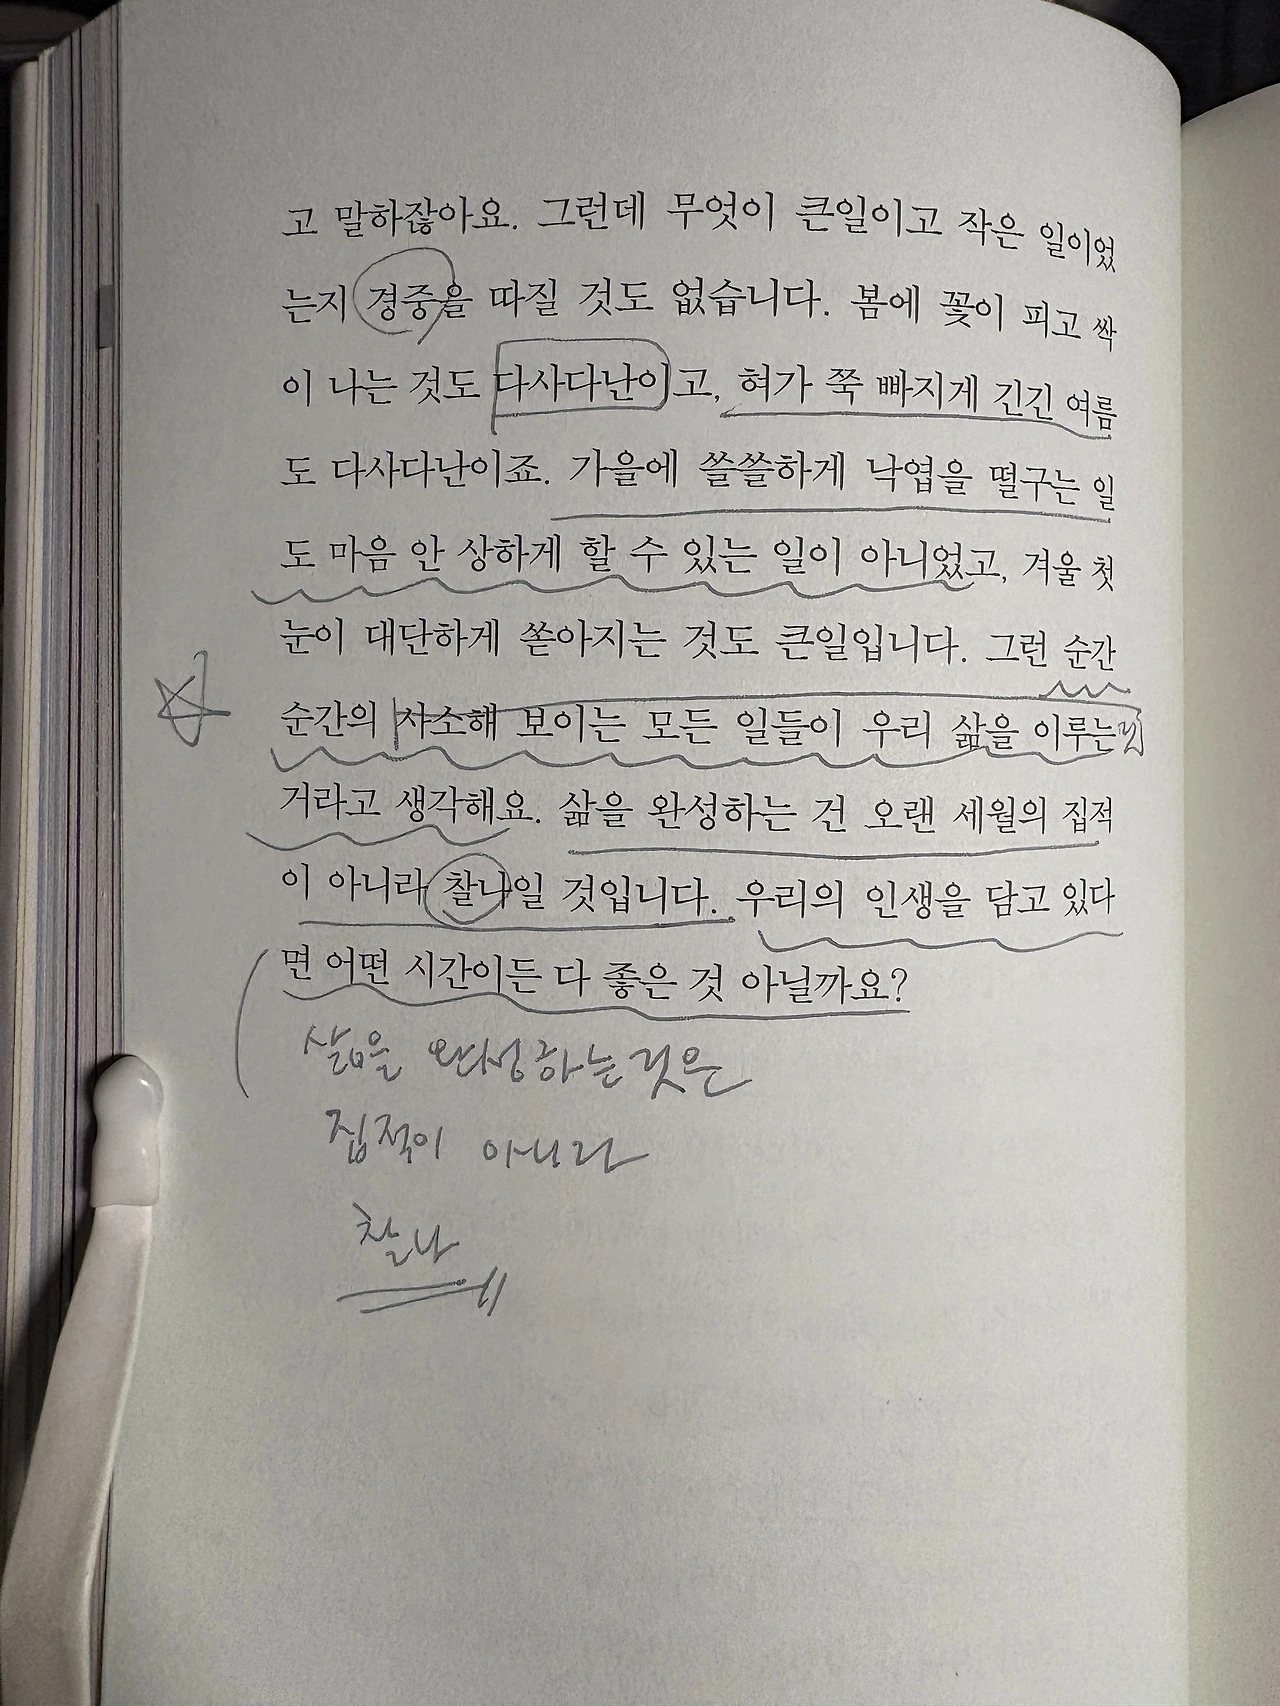 고 말하잖아요. 그런데 무엇이 큰일이고 작은 일이었
는지 경중을 따질 것도 없습니다. 봄에 꽃이 피고 싹
이 나는 것도 다사다난이고, 혀가 쭉 빠지게 긴긴 여름
도 다사다난이죠. 가을에 쓸쓸하게 낙엽을 떨구는 일
도 마음 안 상하게 할 수 있는 일이 아니었고, 겨울 첫
눈이 대단하게 쏟아지는 것도 큰일입니다. 그런 순간
순간의 사소해 보이는 모든 일들이 우리 삶을 이루는
거라고 생각해요. 삶을 완성하는 건 오랜 세월의 집적
이 아니라 찰나일 것입니다. 우리의 인생을 담고 있다
면 어떤 시간이든 다 좋은 것 아닐까요?
삶을 완성하는 것은
집적이 아니라
찰나